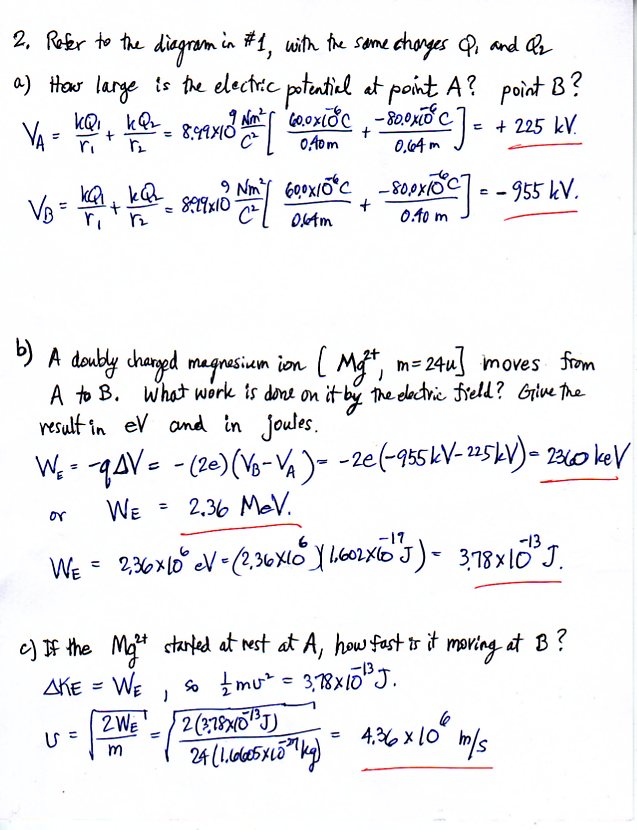 2. Refer to the diagram in #1, with the same charges Q₁ and Q₂
a) How large is the electric potential at point A? point B?
V_A = kQ₁/r₁ + kQ₂/r₂ = 8.99x10⁹ Nm²/C² [ 60.0x10⁻⁶C/0.40m + -80.0x10⁻⁶C/0.64m ] = + 225 kV.
V_B = kQ₁/r₁ + kQ₂/r₂ = 8.99x10⁹ Nm²/C² [ 60.0x10⁻⁶C/0.64m + -80.0x10⁻⁶C/0.40 m ] = - 955 kV.
b) A doubly charged magnesium ion [ Mg²⁺, m=24u] moves from
A to B. What work is done on it by the electric field? Give the
result in eV and in joules.
W_E = -qΔV = -(2e)(V_B-V_A) = -2e(-955kV-225kV) = 2360 keV
or W_E = 2.36 MeV.
W_E = 2.36x10⁶ eV = (2.36x10⁶)(1.602x10⁻¹⁹J) = 3.78x10⁻¹³ J.
c) If the Mg²⁺ started at rest at A, how fast is it moving at B?
ΔKE = W_E , so ½mv² = 3.78x10⁻¹³J.
v = √(2W_E/m) = √(2(3.78x10⁻¹³J)/24(1.6605x10⁻²⁷kg)) = 4.36 x 10⁶ m/s